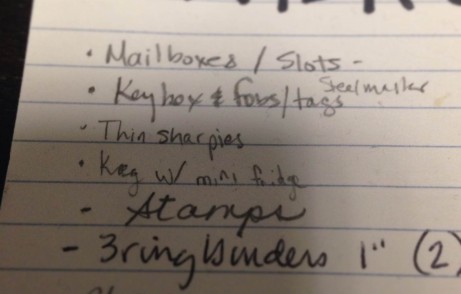 · Mailboxes / Slots -
· Key box & fobs/tags
· Thin sharpies
· Keg w/ mini fridge
- Stamps
- 3 ring binders 1" (2)